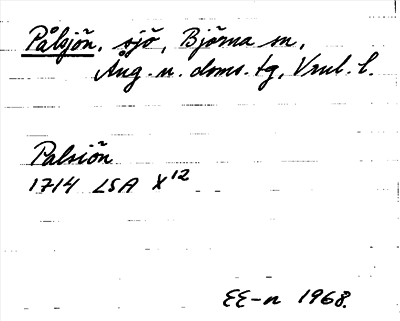 Pålsjön, sjö, Björna sn,
Ång. n. doms. tg, Vnrl. l.
Palsiön
1714 LSA X12
EE-n 1968.